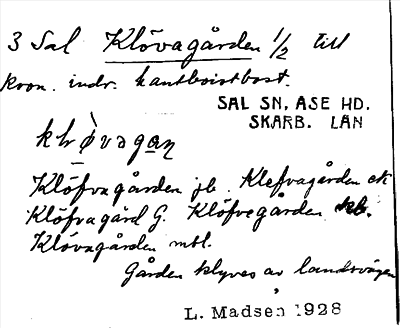 3 Sal Klövagården 1/2 till
kron. indr. hautboistbost.
SAL SN, ASE HD.
SKARB. LÄN
klø̀vagan
Klöfvagården jb. Klefvagården ek
Klöfvagård G. Klöfvegården kb.
Klövagården mtl.
Gården klyves av landsvägen
L. Madsen 1928